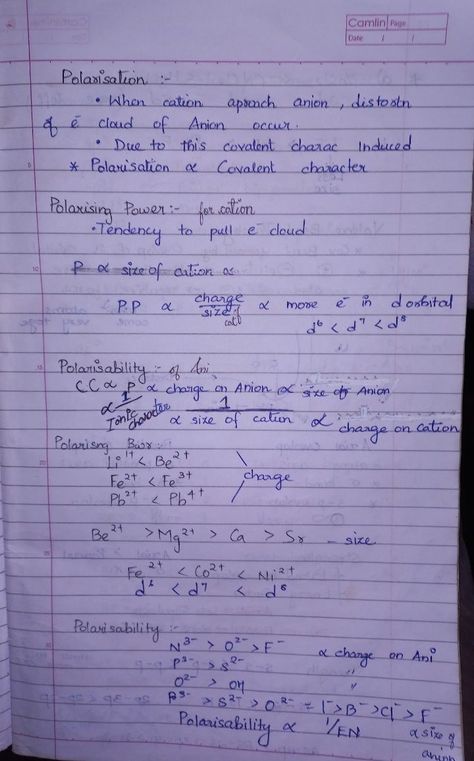 Camlin Page
Date / /
Polarisation :-
• When cation aproach anion, distootn
of e⁻ cloud of Anion occur.
• Due to this covalent charac Induced
* Polarisation ∝ Covalent character
Polarising Power:- for cation
• Tendency to pull e⁻ cloud
P ∝ size of cation ∝
P.P ∝ charge/size of cat ∝ more e⁻ in d orbital
d⁶ < d⁷ < d⁸
Polarisability :- of Ani
CC ∝ P ∝ charge on Anion ∝ size of Anion
∝ 1/Ionic character ∝ 1/size of cation ∝ charge on cation
Polarisng
Li¹⁺ < Be²⁺
Fe²⁺ < Fe³⁺ charge
Pb²⁺ < Pb⁴⁺
Be²⁺ > Mg²⁺ > Ca > Sr - size
Fe²⁺ < Co²⁺ < Ni²⁺
d⁶ < d⁷ < d⁸
Polarisability :-
N³⁻ > O²⁻ > F⁻ ∝ charge on Ani
P³⁻ > S²⁻ "
O²⁻ > OH "
P³⁻ > S²⁻ > O²⁻ = I⁻ > B⁻ > Cl⁻ > F⁻
Polarisability ∝ 1/EN ∝ size of
anion